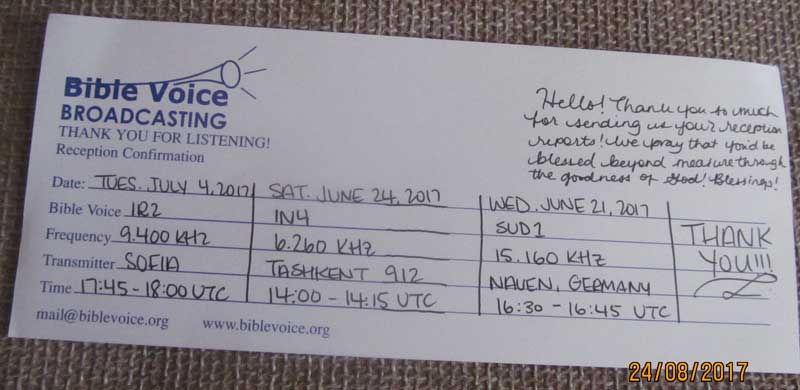 Bible Voice
BROADCASTING
THANK YOU FOR LISTENING!
Reception Confirmation
Hello! Thank you so much
for sending us your reception
reports! We pray that you'd be
blessed beyond measure through
the goodness of God! Blessings!
Date: TUES. JULY 4, 2017 SAT. JUNE 24, 2017 WED. JUNE 21, 2017
Bible Voice IR2 IN4 SUD1
Frequency 9.400 KHZ 6.260 KHZ 15.160 KHZ
Transmitter SOFIA TASHKENT 912 NAUEN, GERMANY
Time 17:45-18:00 UTC 14:00-14:15 UTC 16:30-16:45 UTC
THANK
YOU!!!
mail@biblevoice.org www.biblevoice.org
24/08/2017